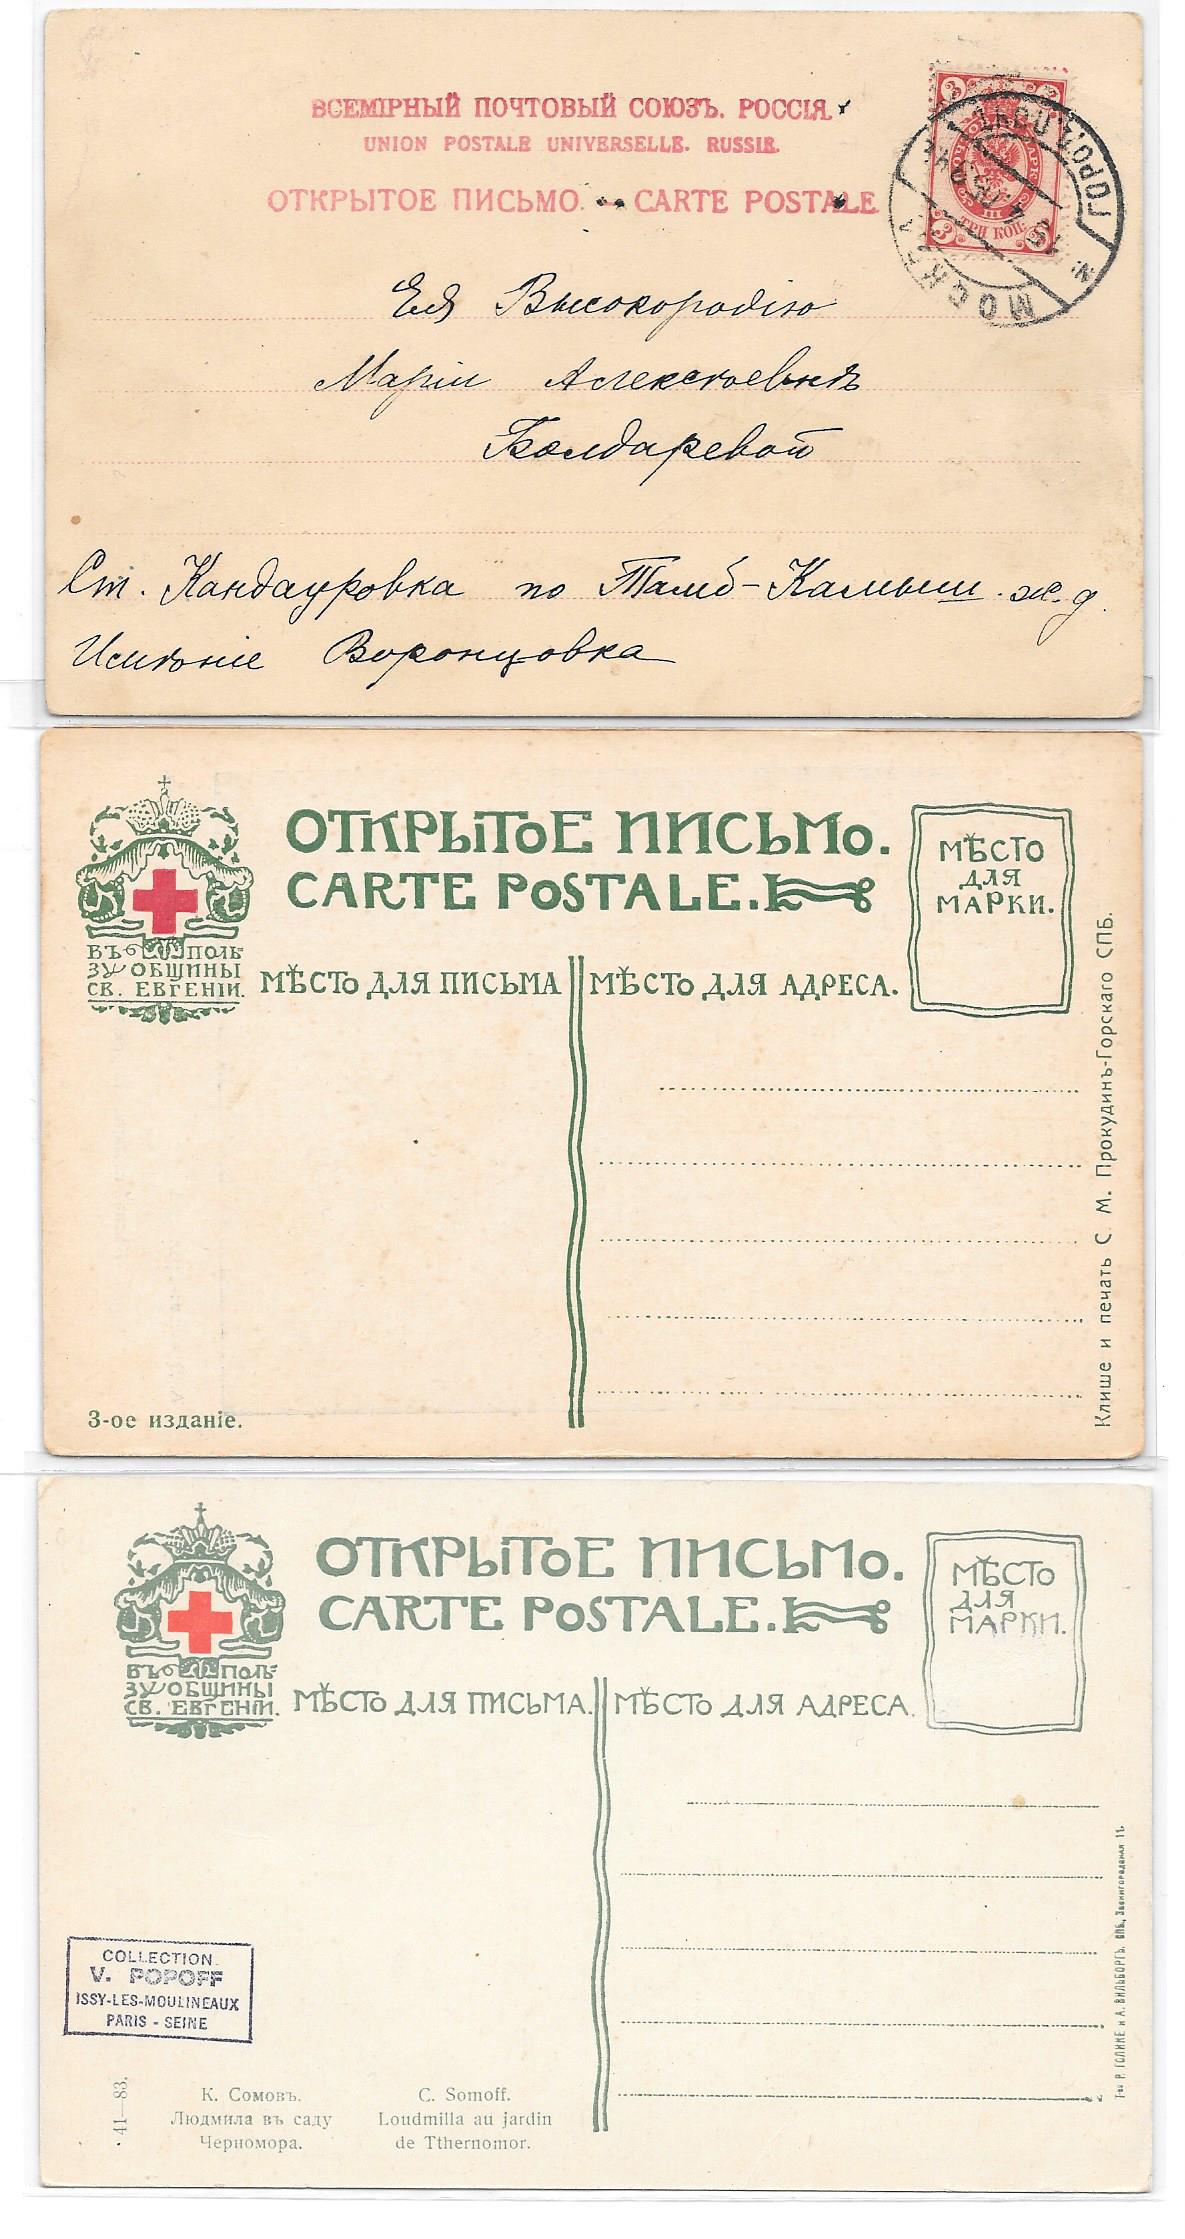 ВСЕМІРНЫЙ ПОЧТОВЫЙ СОЮЗЪ. РОССІЯ.
UNION POSTALE UNIVERSELLE. RUSSIE.
ОТКРЫТОЕ ПИСЬМО. — CARTE POSTALE.
3 3
ТРИ КОП.
3 3
МОСКВА ГОРОД. ПОЧТ.
Ея Высокородію
Маріи Алексѣевнѣ
Болдаревой
Ст. Кандауровка по Тамб-Камыш. ж. д.
Имѣніе Воронцовка
ОТКРЫТОЕ ПИСЬМО.
CARTE POSTALE.
МѢСТО
ДЛЯ
МАРКИ.
ВЪ ПОЛЬ-
ЗУ ОБЩИНЫ
СВ. ЕВГЕНІИ.
МѢСТО ДЛЯ ПИСЬМА
МѢСТО ДЛЯ АДРЕСА.
Клише и печать С. М. Прокудинъ-Горскаго СПБ.
3-ое изданіе.
ОТКРЫТОЕ ПИСЬМО.
CARTE POSTALE.
МѢСТО
ДЛЯ
МАРКИ.
ВЪ ПОЛЬ-
ЗУ ОБЩИНЫ
СВ. ЕВГЕНІИ.
МѢСТО ДЛЯ ПИСЬМА.
МѢСТО ДЛЯ АДРЕСА.
Тво Р. ГОЛИКЕ и А. ВИЛЬБОРГЪ. СПБ, Звенигородская 11.
COLLECTION
V. POPOFF
ISSY-LES-MOULINEAUX
PARIS - SEINE
41—83.
К. Сомовъ.
Людмила въ саду
Черномора.
C. Somoff.
Loudmilla au jardin
de Tthernomor.